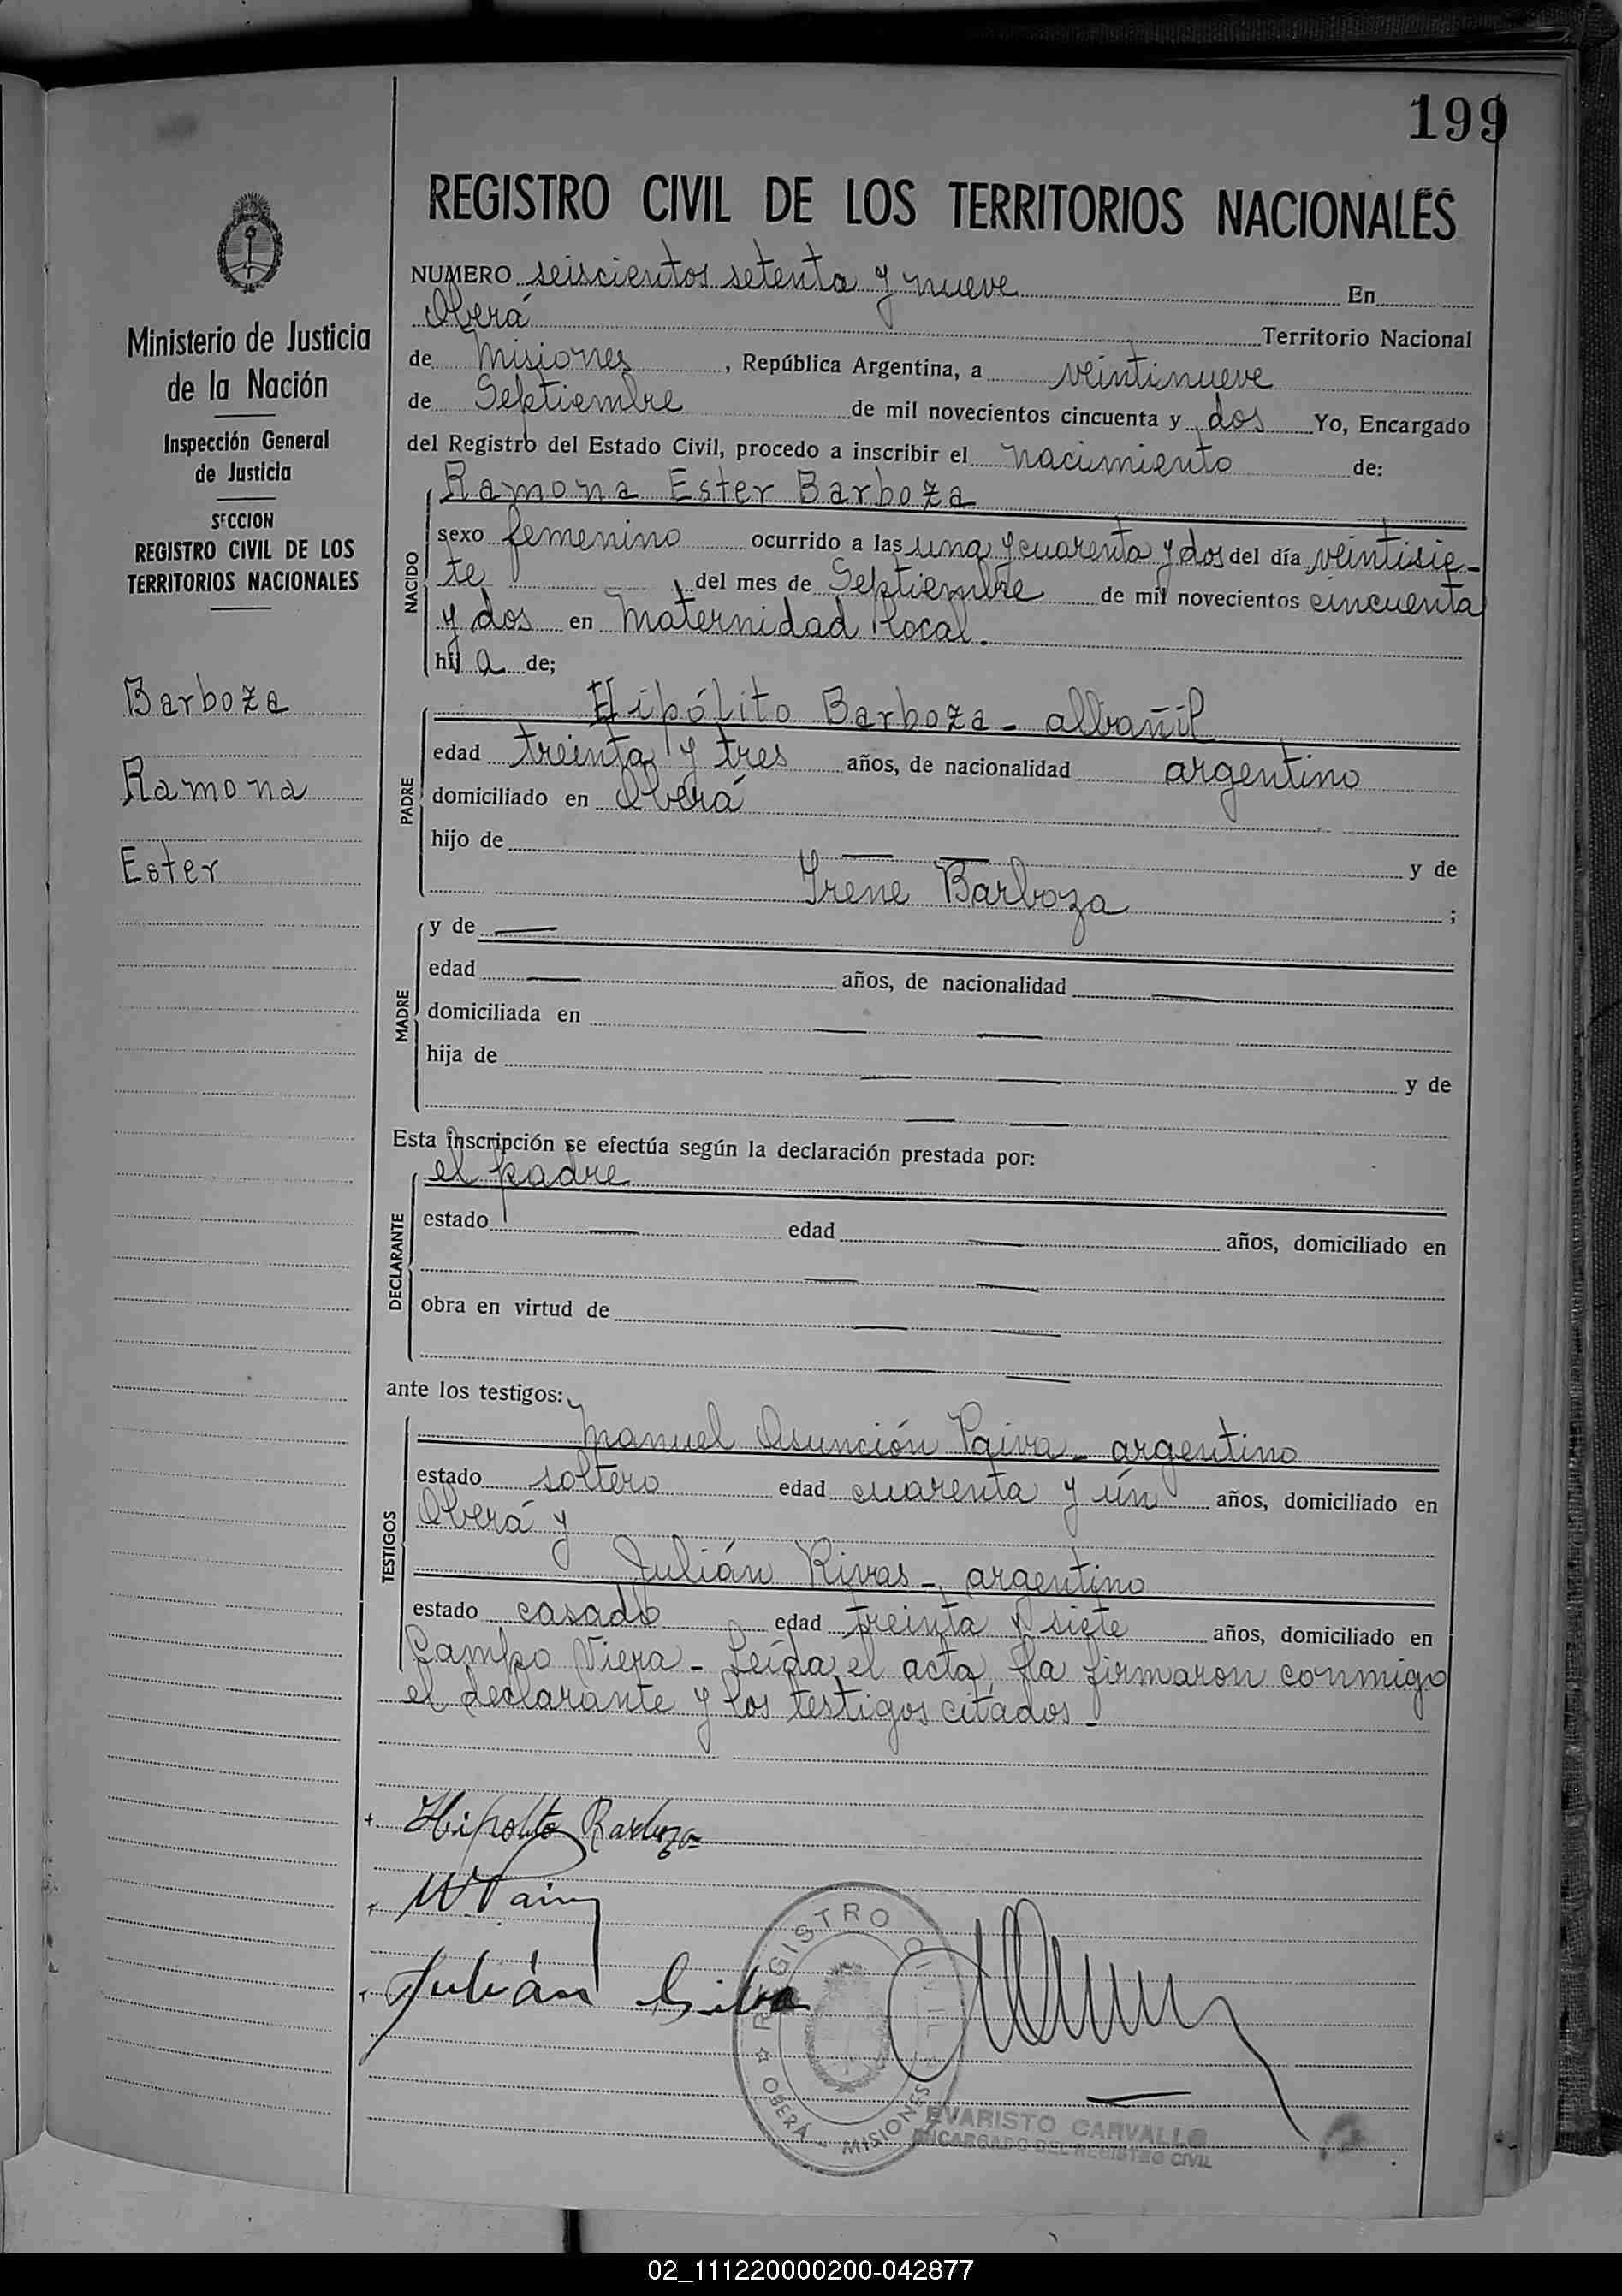 199
REGISTRO CIVIL DE LOS TERRITORIOS NACIONALES
Ministerio de Justicia
de la Nación
Inspección General
de Justicia
SECCION
REGISTRO CIVIL DE LOS
TERRITORIOS NACIONALES
Barboza
Ramona
Ester
NUMERO seiscientos setenta y nueve En
Oberá Territorio Nacional
de Misiones, República Argentina, a veintinueve
de Septiembre de mil novecientos cincuenta y dos Yo, Encargado
del Registro del Estado Civil, procedo a inscribir el nacimiento de:
NACIDO
Ramona Ester Barboza
sexo femenino ocurrido a las una y cuarenta y dos del día veintisie-
te del mes de Septiembre de mil novecientos cincuenta
y dos en Maternidad local.
hija de;
PADRE
Hipólito Barboza - albañil
edad treinta y tres años, de nacionalidad argentino
domiciliado en Oberá
hijo de — — y de
Irene Barboza ;
MADRE
y de —
edad — años, de nacionalidad —
domiciliada en — —
hija de — — y de
— —
Esta inscripción se efectúa según la declaración prestada por:
DECLARANTE
el padre
estado — edad — años, domiciliado en
— —
obra en virtud de — —
— —
ante los testigos:
TESTIGOS
Manuel Asunción Paiva - argentino
estado soltero edad cuarenta y un años, domiciliado en
Oberá y
Julián Rivas - argentino
estado casado edad treinta y siete años, domiciliado en
Campo Viera - Leída el acta la firmaron conmigo
el declarante y los testigos citados -
Hipolito Barboza
M. Paiva
Julián
REGISTRO CIVIL
OBERÁ - MISIONES
EVARISTO CARVALLO
ENCARGADO DEL REGISTRO CIVIL
02_111220000200-042877